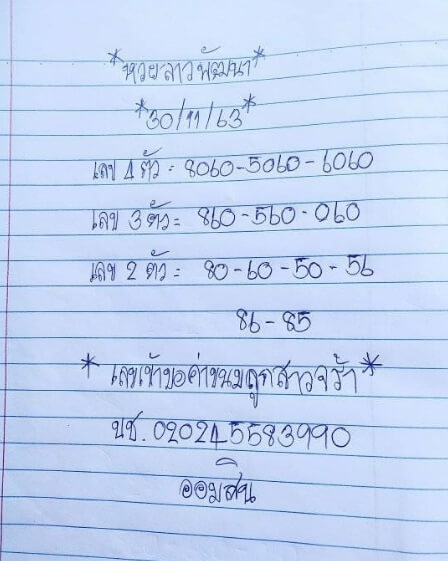 *หวยลาวพัฒนา*
*30/11/63*
เลข 4 ตัว = 8060-5060-6060
เลข 3 ตัว = 860-560-060
เลข 2 ตัว = 80-60-50-56
86-85
*เลขเข้าขอค่าขนมลูกสาวจร้า*
บช. 020245583990
ออมสิน